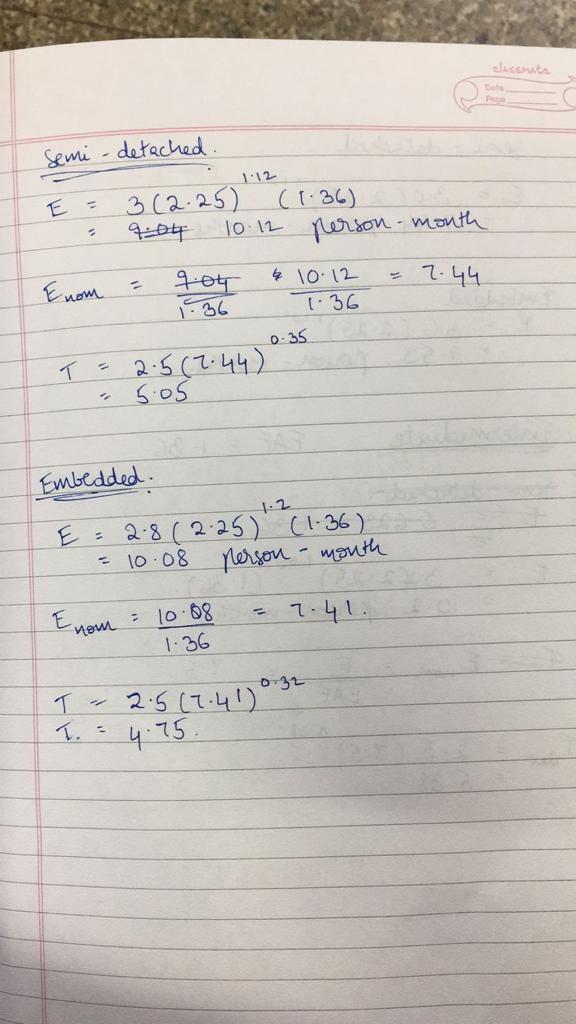 classmate
Date
Page
Semi - detached.
E = 3(2.25)^1.12 (1.36)
= 9.04 10.12 person - month
E nom = 9.04/1.36 10.12/1.36 = 7.44
T = 2.5(7.44)^0.35
= 5.05
Embedded.
E = 2.8(2.25)^1.2 (1.36)
= 10.08 person - month
E nom = 10.08/1.36 = 7.41.
T = 2.5(7.41)^0.32
T. = 4.75.